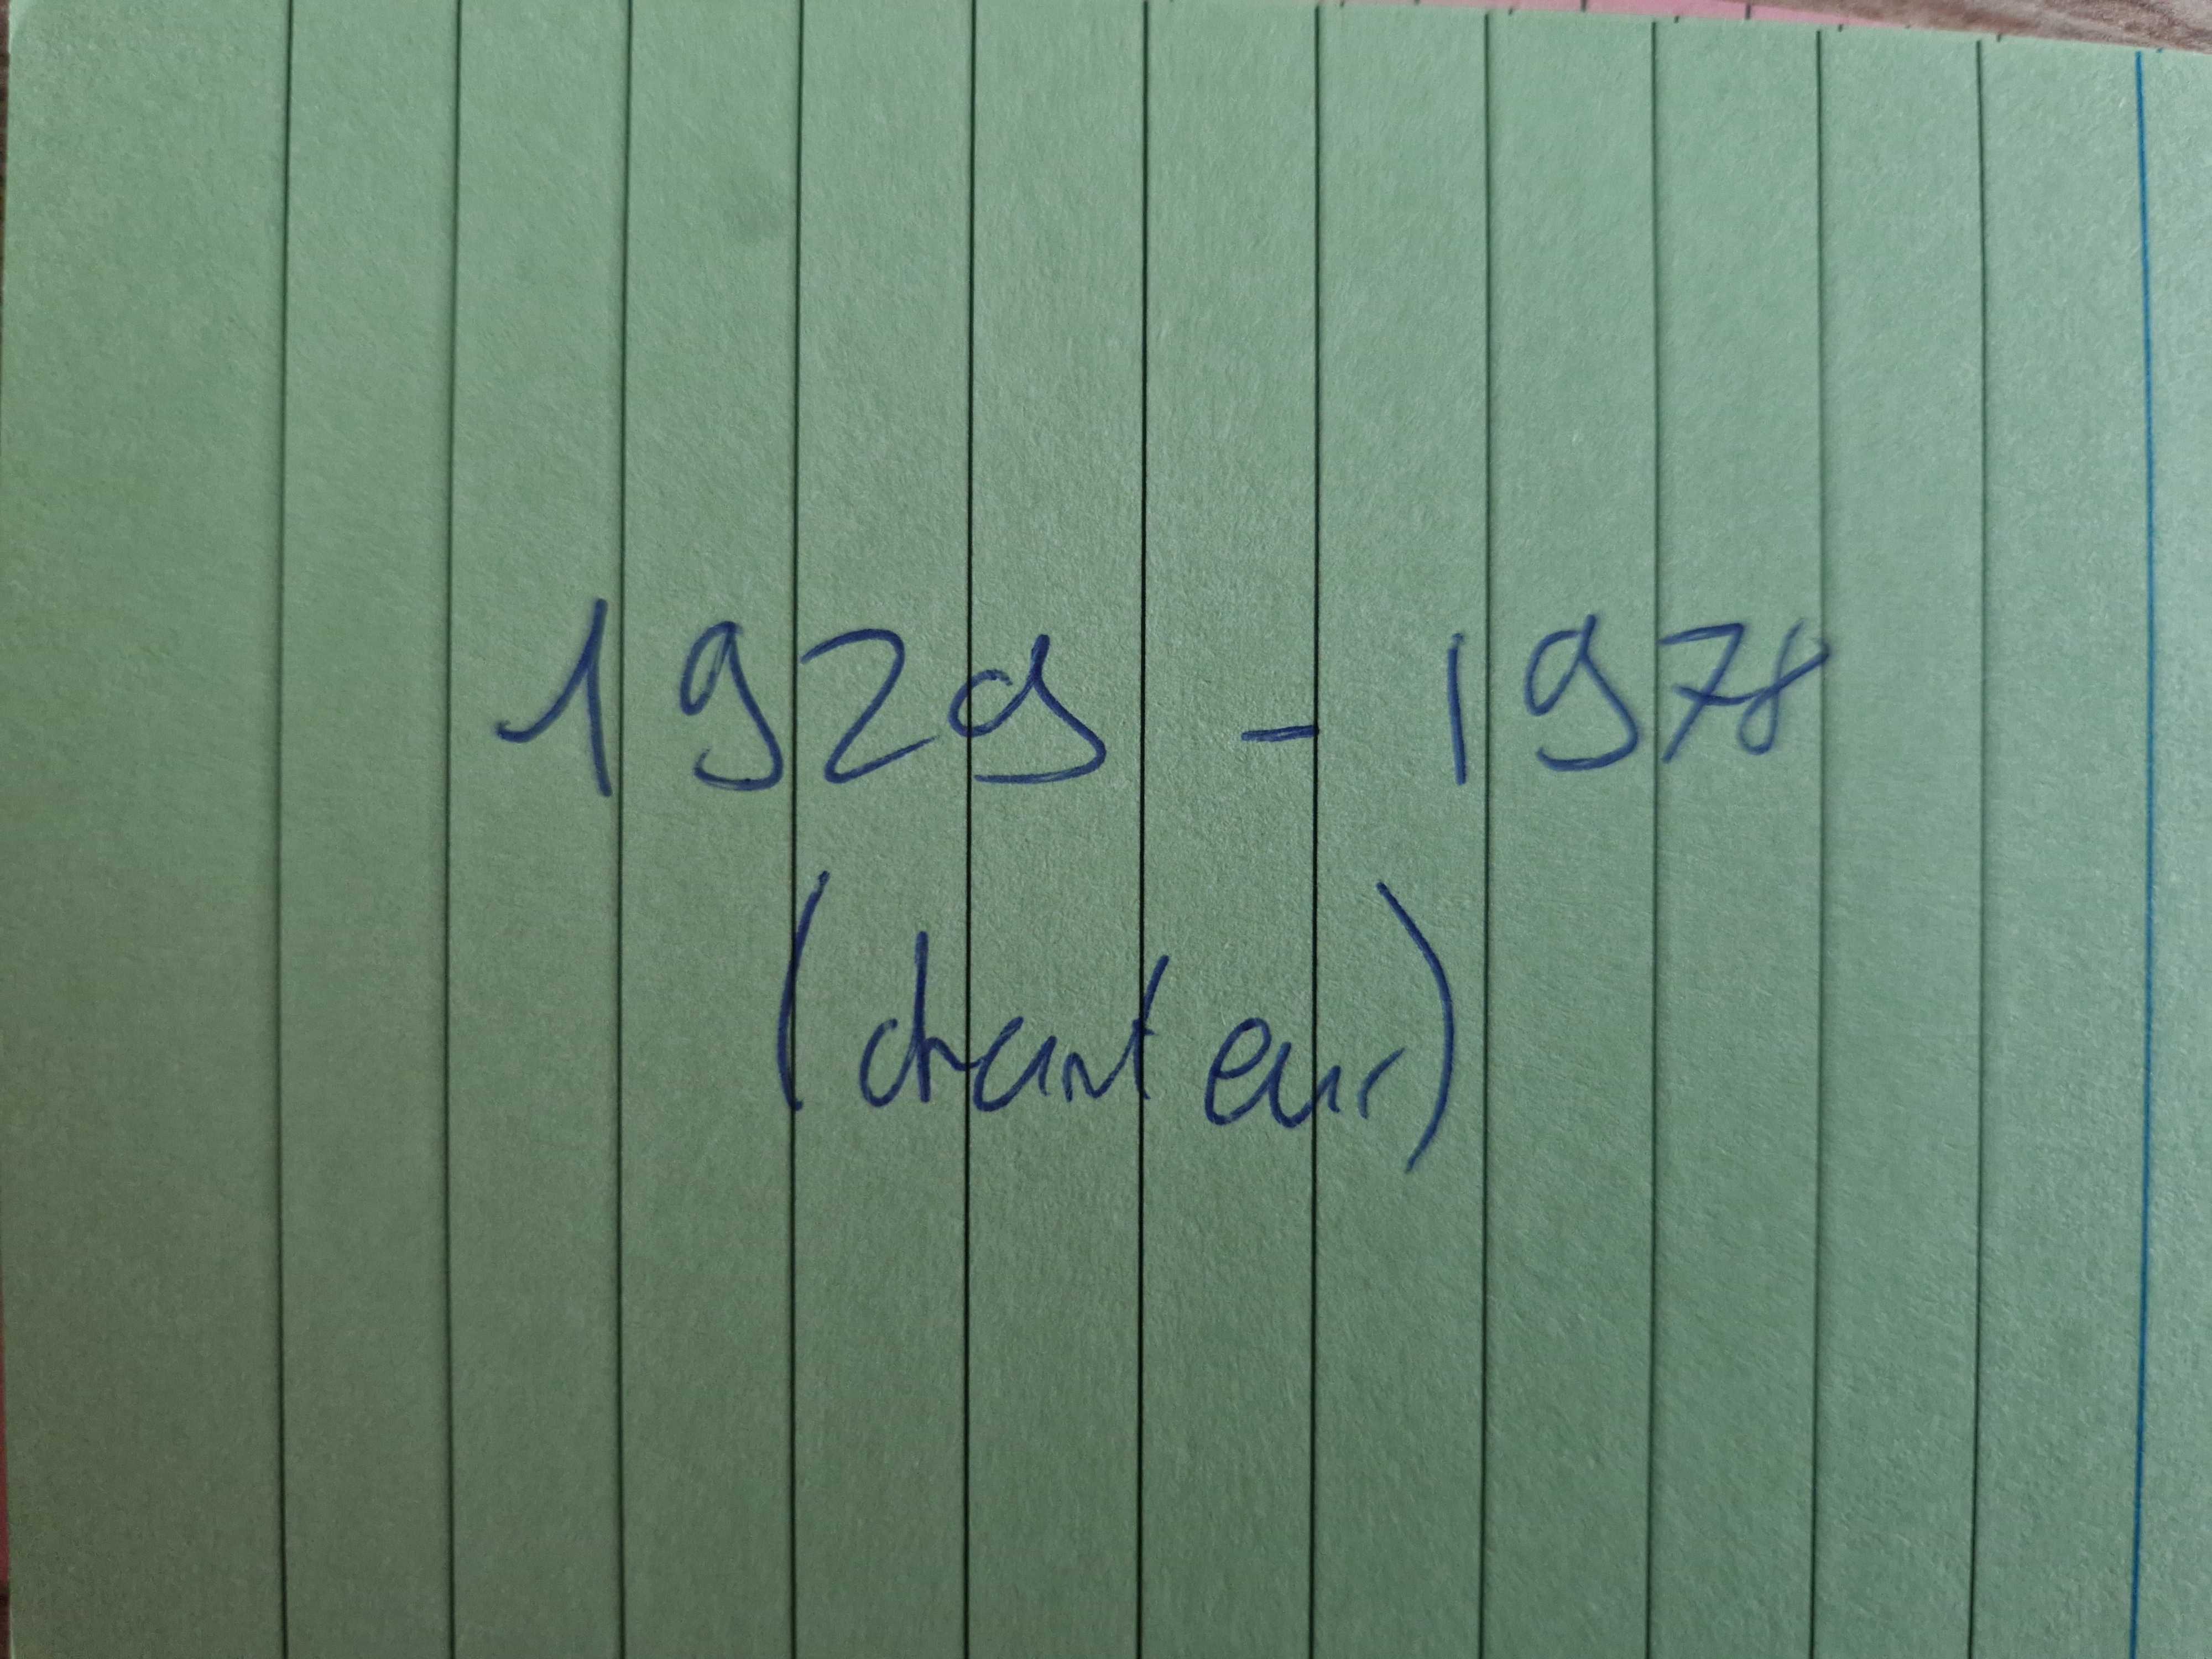 1929 - 1978
(chanteur)